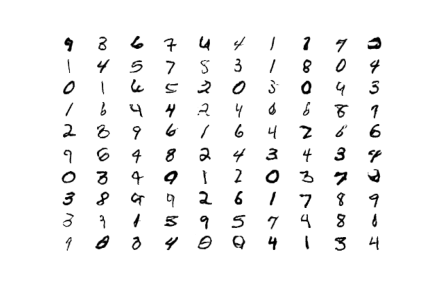 9 3 6 7 4 4 1 7 7 2
1 4 5 7 5 3 1 8 0 4
0 1 6 5 2 0 3 0 9 3
1 6 4 4 2 4 6 6 8 7
2 8 9 6 1 6 4 2 6 6
9 6 4 8 2 4 3 4 3 4
0 3 4 9 1 2 0 3 7 2
3 8 9 9 2 6 1 7 8 9
3 3 1 5 9 5 7 4 8 6
9 0 3 4 0 0 4 1 3 4